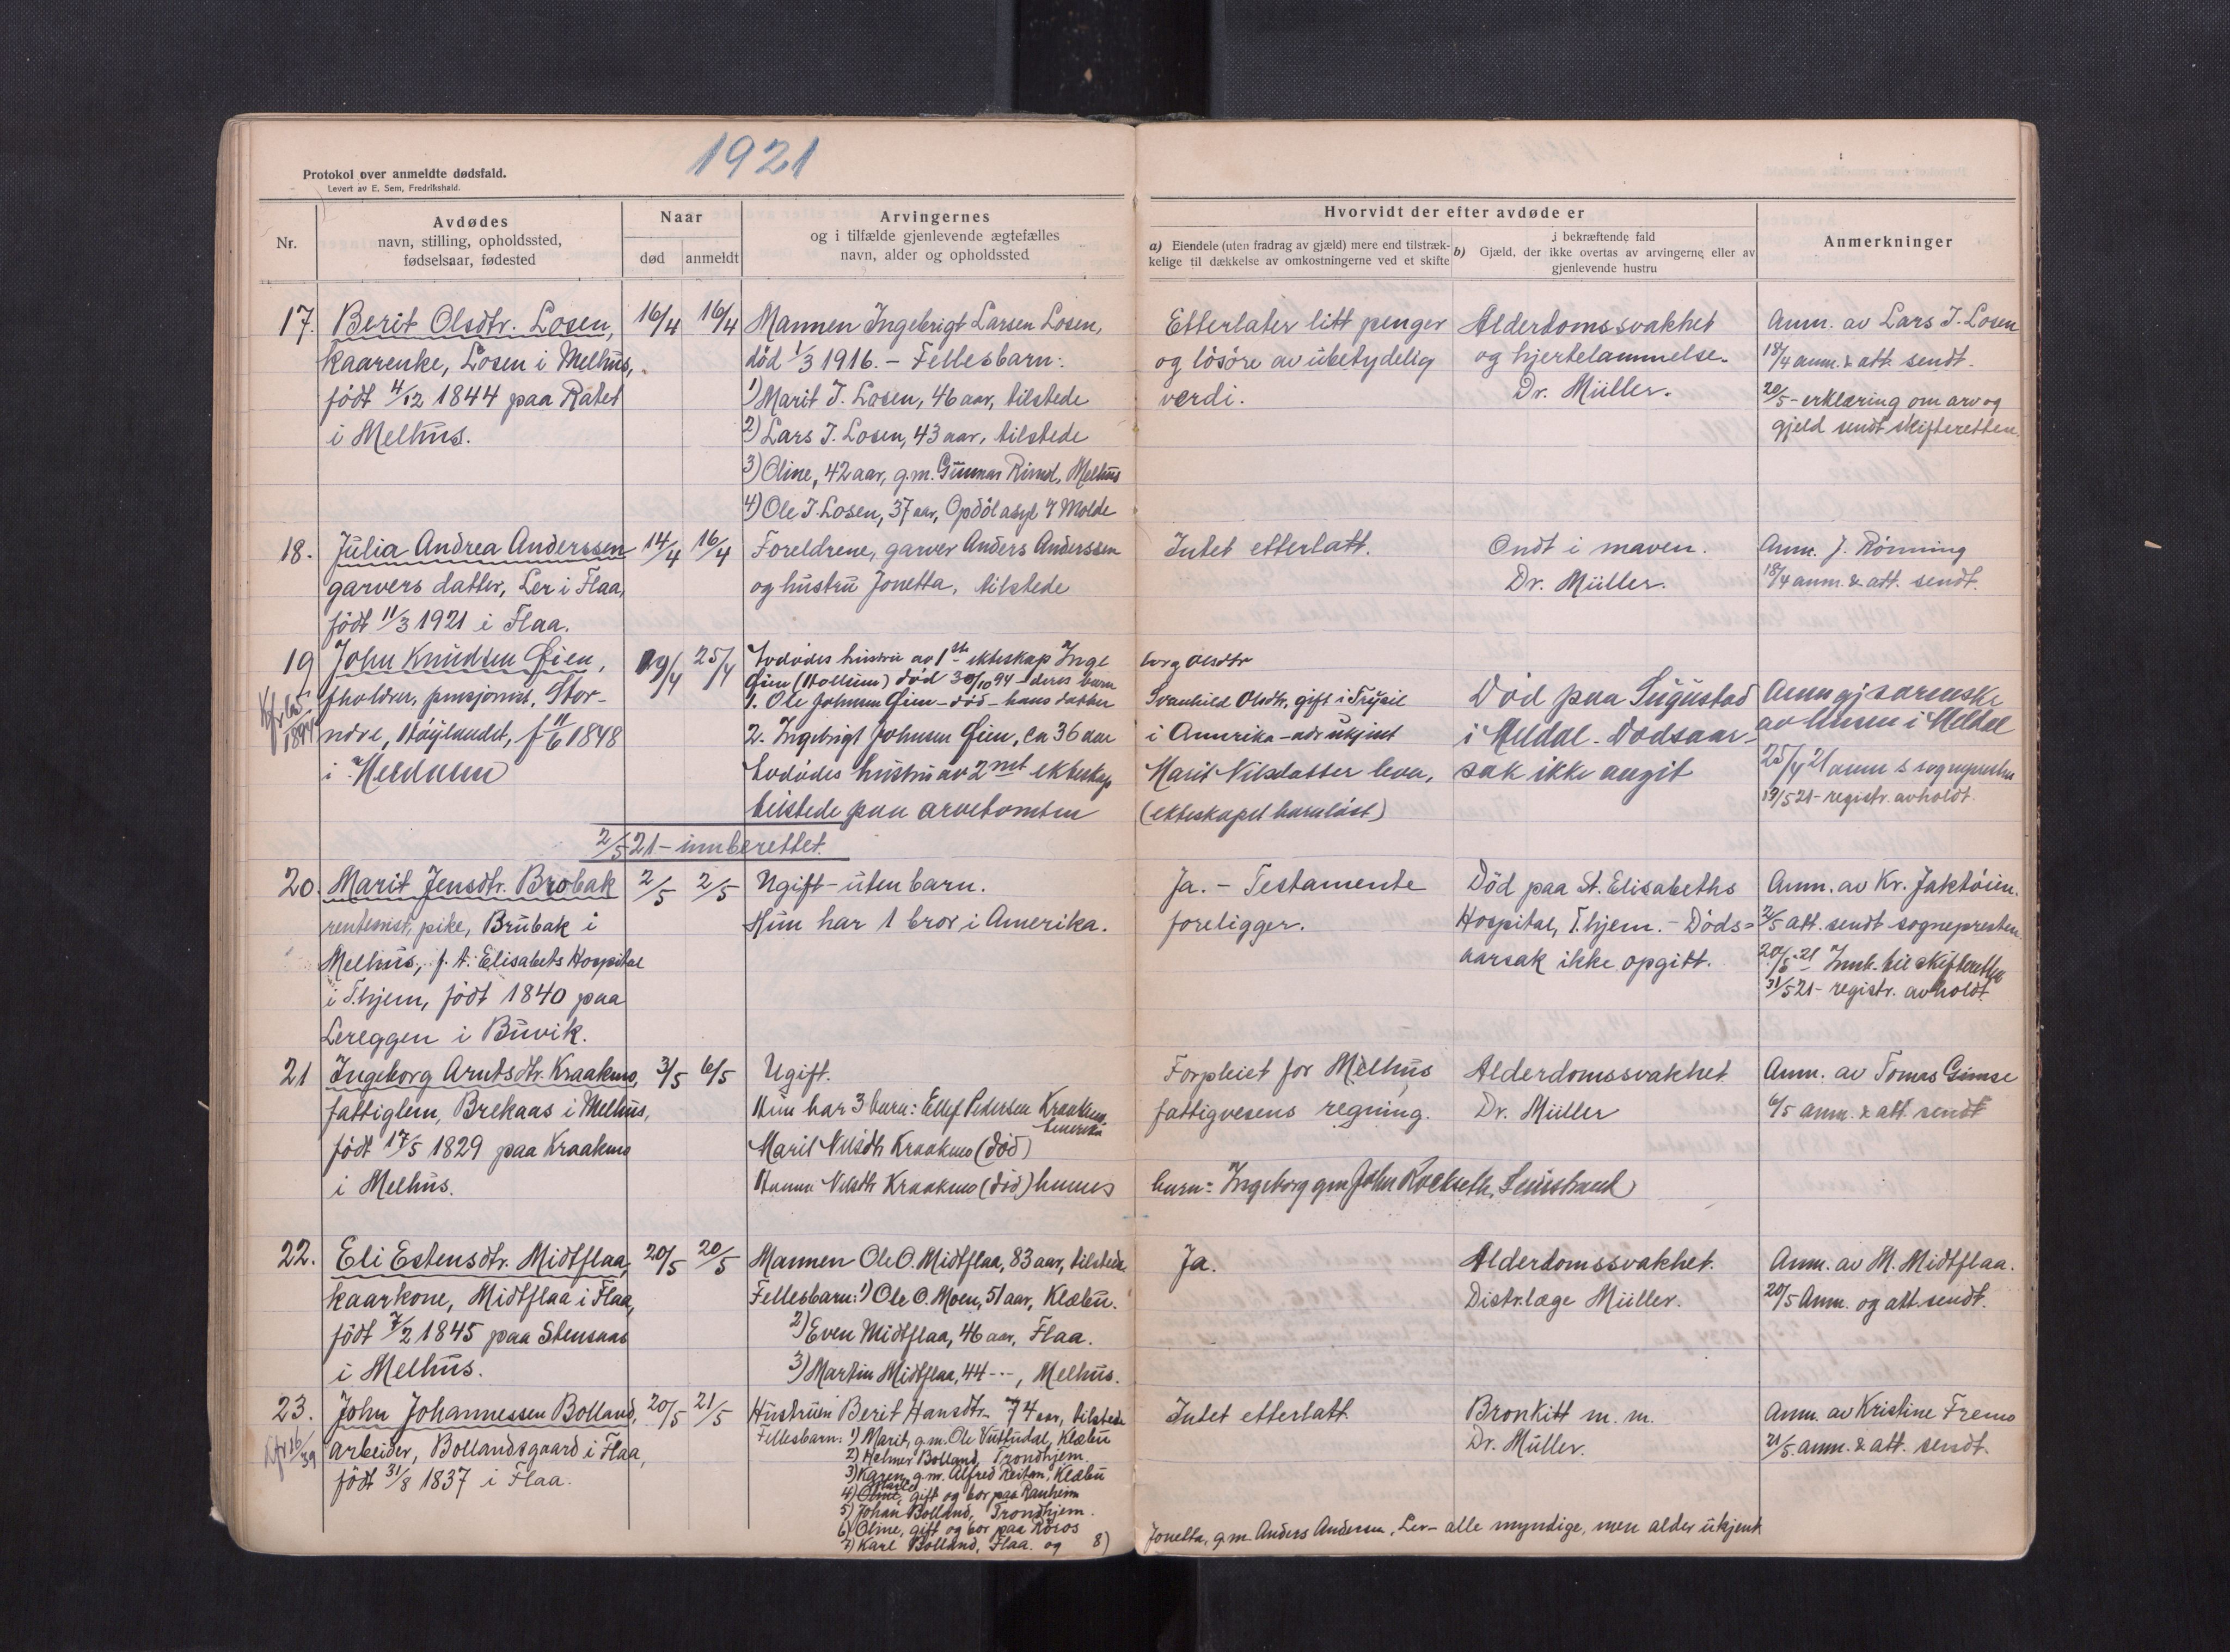 1921
Protokol over anmeldte dødsfald.
Levert av E. Sem, Fredrikshald.
Nr.
Avdødes
navn, stilling, opholdssted,
fødselsaar, fødested
Naar
død anmeldt
Arvingernes
og i tilfælde gjenlevende ægtefælles
navn, alder og opholdssted
Hvorvidt der efter avdøde er
a) Eiendele (uten fradrag av gjæld) mere end tilstræk-
kelige til dækkelse av omkostningerne ved et skifte
i bekræftende fald
b) Gjæld, der ikke overtas av arvingerne eller av
gjenlevende hustru
Anmerkninger
17. Berit Olsdtr. Losen,
kaarenke, Losen i Melhus,
født 4/12 1844 paa Ratet
i Melhus.
16/4 16/4
Mannen Ingebrigt Larsen Losen,
död 1/3 1916. - Fellesbarn:
1) Marit I. Losen, 46 aar, tilstede
2) Lars I. Losen, 43 aar, tilstede
3) Oline, 42 aar, g.m. Gunnar Rimol, Melhus
4) Ole I. Losen, 37 aar, Opdöl asyl p Molde
Etterlater litt penger
og lösöre av ubetydelig
verdi.
Alderdomssvakhet
og hjertelammelse.
Dr. Müller.
Anm. av Lars I. Losen
18/4 anm. & att. sendt.
20/5 - erklæring om arv og
gjeld sendt skifteretten.
18. Julia Andrea Anderssen
garvers datter, Ler i Flaa,
födt 11/3 1921 i Flaa.
14/4 16/4
Foreldrene, garver Anders Anderssen
og hustru Jonetta, tilstede
Intet etterlatt.
Ondt i maven.
Dr. Müller.
Anm. J. Rönning
18/4 anm. & att. sendt.
19 John Knudsen Øien,
fholdar, pensjonist, Stor-
ndre, Höylandet, f 11/6 1848
i Meldalen
19/4 25/4
Avdödes hustru av 1ste ekteskap Inge
Øien (Hollum) död 30/10 94 - deres barn
1. Ole Johnsen Øien - död - hans datter
2. Ingebrigt Johnsen Øien, ca 36 aar
Avdödes hustru av 2net ekteskap
tilstede paa arvetomten
borg Olsdtr
Svanhild Olsdtr, gift i Trysil
i Amerika - adr ukjent
Marit Nilsdatter lever,
(ekteskapet barnlöst)
Död paa Sugustad
i Meldal. Dödsaar-
sak ikke angit
Anm gj
av i Meldal
25/4 21 anm s sognepresten
19/5 21 - registr. avholdt
2/5 21 - innberettet.
20. Marit Jensdtr. Brobak
rentenist, pike, Brubak i
Melhus, f. t. Elisabets Hospital
i T.hjem, födt 1840 paa
Lereggen i Buvik.
2/5 2/5
Ugift - uten barn.
Hun har 1 bror i Amerika.
Ja. - Testamente
foreligger.
Död paa St. Elisabeths
Hospital, T.hjem. - Döds=
aarsak ikke opgitt.
Anm. av Kr. Jaktöien.
2/5 att. sendt sognepresten.
20/5 21 Innb. til skifteretten
31/5 21 - registr. avholdt.
21 Ingeborg Arntsdtr. Kraakmo,
fattiglem, Brekaas i Melhus,
födt 17/5 1829 paa Kraakmo
i Melhus.
3/5 6/5
Ugift.
Hun har 3 barn: Ellef Pedersen Kraakmo,
Amerika
Marit Nilsdtr Kraakmo (död)
Hanna Nilsdtr Kraakmo (död) hennes
Forpleiet for Melhus
fattigvesens regning.
barn: Ingeborg gm John Rockseth, Leinstrand
Alderdomssvakhet.
Dr. Müller
Anm. av Tomas Gimse
6/5 anm. & att. sendt
22. Eli Estensdtr. Midtflaa,
kaarkone, Midtflaa i Flaa,
födt 7/2 1845 paa Stensaas
i Melhus.
20/5 20/5
Mannen Ole O. Midtflaa, 83 aar, tilstede.
Fellesbarn: 1) Ole O. Moen, 51 aar, Klæbu.
2) Even Midtflaa, 46 aar, Flaa.
3) Martin Midtflaa, 44 - -, Melhus.
Ja.
Alderdomssvakhet.
Distr.læge Müller.
Anm. av M. Midtflaa.
20/5 Anm. og att. sendt.
23. John Johannessen Bolland,
arbeider, Bollandsgaard i Flaa,
födt 31/8 1837 i Flaa.
20/5 21/5
Hustruen Berit Hansdtr. 74 aar, tilstede
Fellesbarn: 1) Marit, g.m. Ole Vuttudal, Klæbu
2) Helmer Bolland, Trondhjem.
3) Karen, g.m. Alfred Reitan, Klæbu
4) Oline, gift og bor paa Ranheim
5) Johan Bolland, Trondhjem.
6) Oline, gift og bor paa Röros
7) Karl Bolland, Flaa. og 8)
Jonetta, g.m. Anders Andersen, Ler - alle myndige, men alder ukjent
Intet etterlatt.
Bronkitt m. m.
Dr. Müller.
Anm. av Kristine Fremo
21/5. anm. & att. sendt.